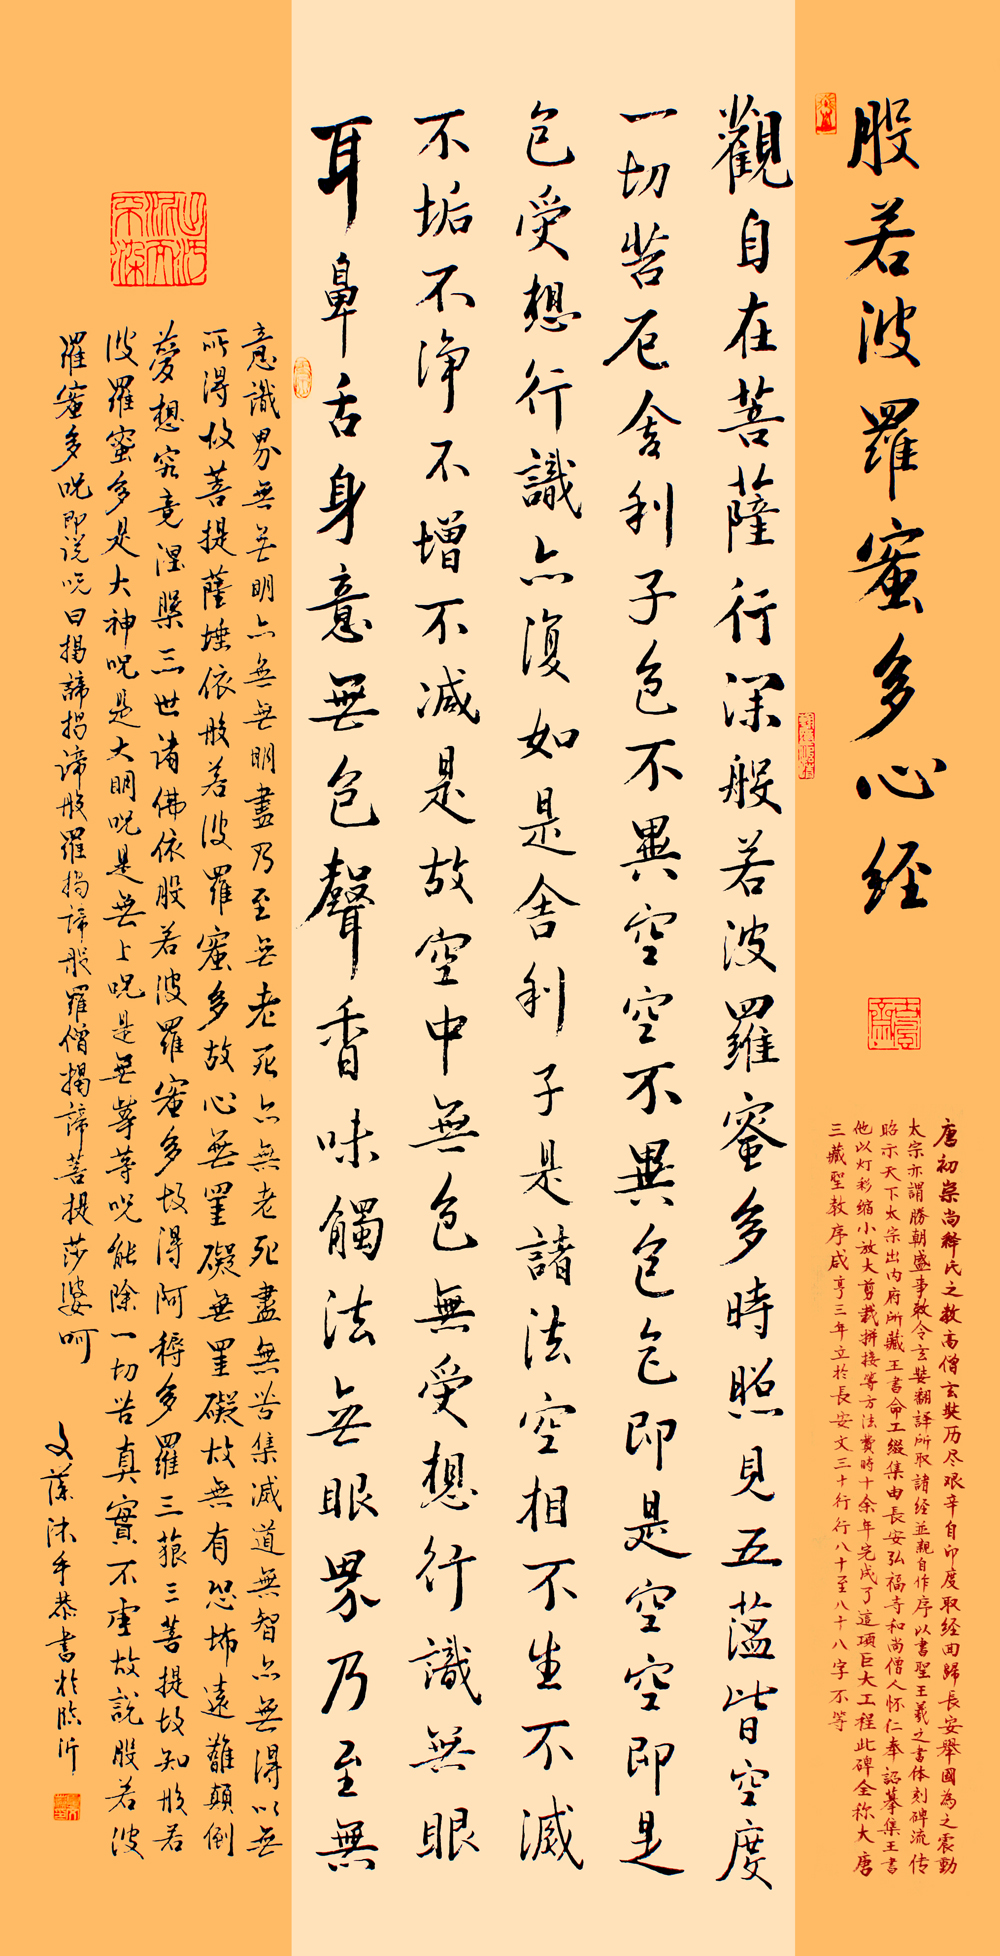 般若波羅蜜多心经
唐初崇尚释氏之教高僧玄奘历尽艰辛自印度取经回歸長安舉國為之震動
太宗亦謂勝朝盛事敕令玄奘翻譯所取諸經並親自作序以書聖王羲之書体刻碑流传
昭示天下太宗出内府所藏王書命工缀集由長安弘福寺和尚僧人怀仁奉詔摹集王書
他以灯彩缩小放大剪裁拼接等方法費時十余年完成了這項巨大工程此碑全称大唐
三藏聖教序咸亨三年立於長安文三十行行八十至八十八字不等
觀自在菩薩行深般若波羅蜜多時照見五蘊皆空度
一切苦厄舍利子色不異空空不異色色即是空空即是
色受想行識亦復如是舍利子是諸法空相不生不滅
不垢不净不增不减是故空中無色無受想行識無眼
耳鼻舌身意無色聲香味觸法無眼界乃至無
意識界無無明亦無無明盡乃至無老死亦無老死盡無苦集滅道無智亦無得以無
所得故菩提薩埵依般若波羅蜜多故心無罣礙無罣礙故無有恐怖遠離顛倒
夢想究竟涅槃三世諸佛依般若波羅蜜多故得阿耨多羅三藐三菩提故知般若
波羅蜜多是大神呪是大明呪是無上呪是無等等呪能除一切苦真實不虚故説般若波
羅蜜多呪即说呪曰揭諦揭諦般羅揭諦般羅僧揭諦菩提莎婆呵
文藻沐手恭書於临沂